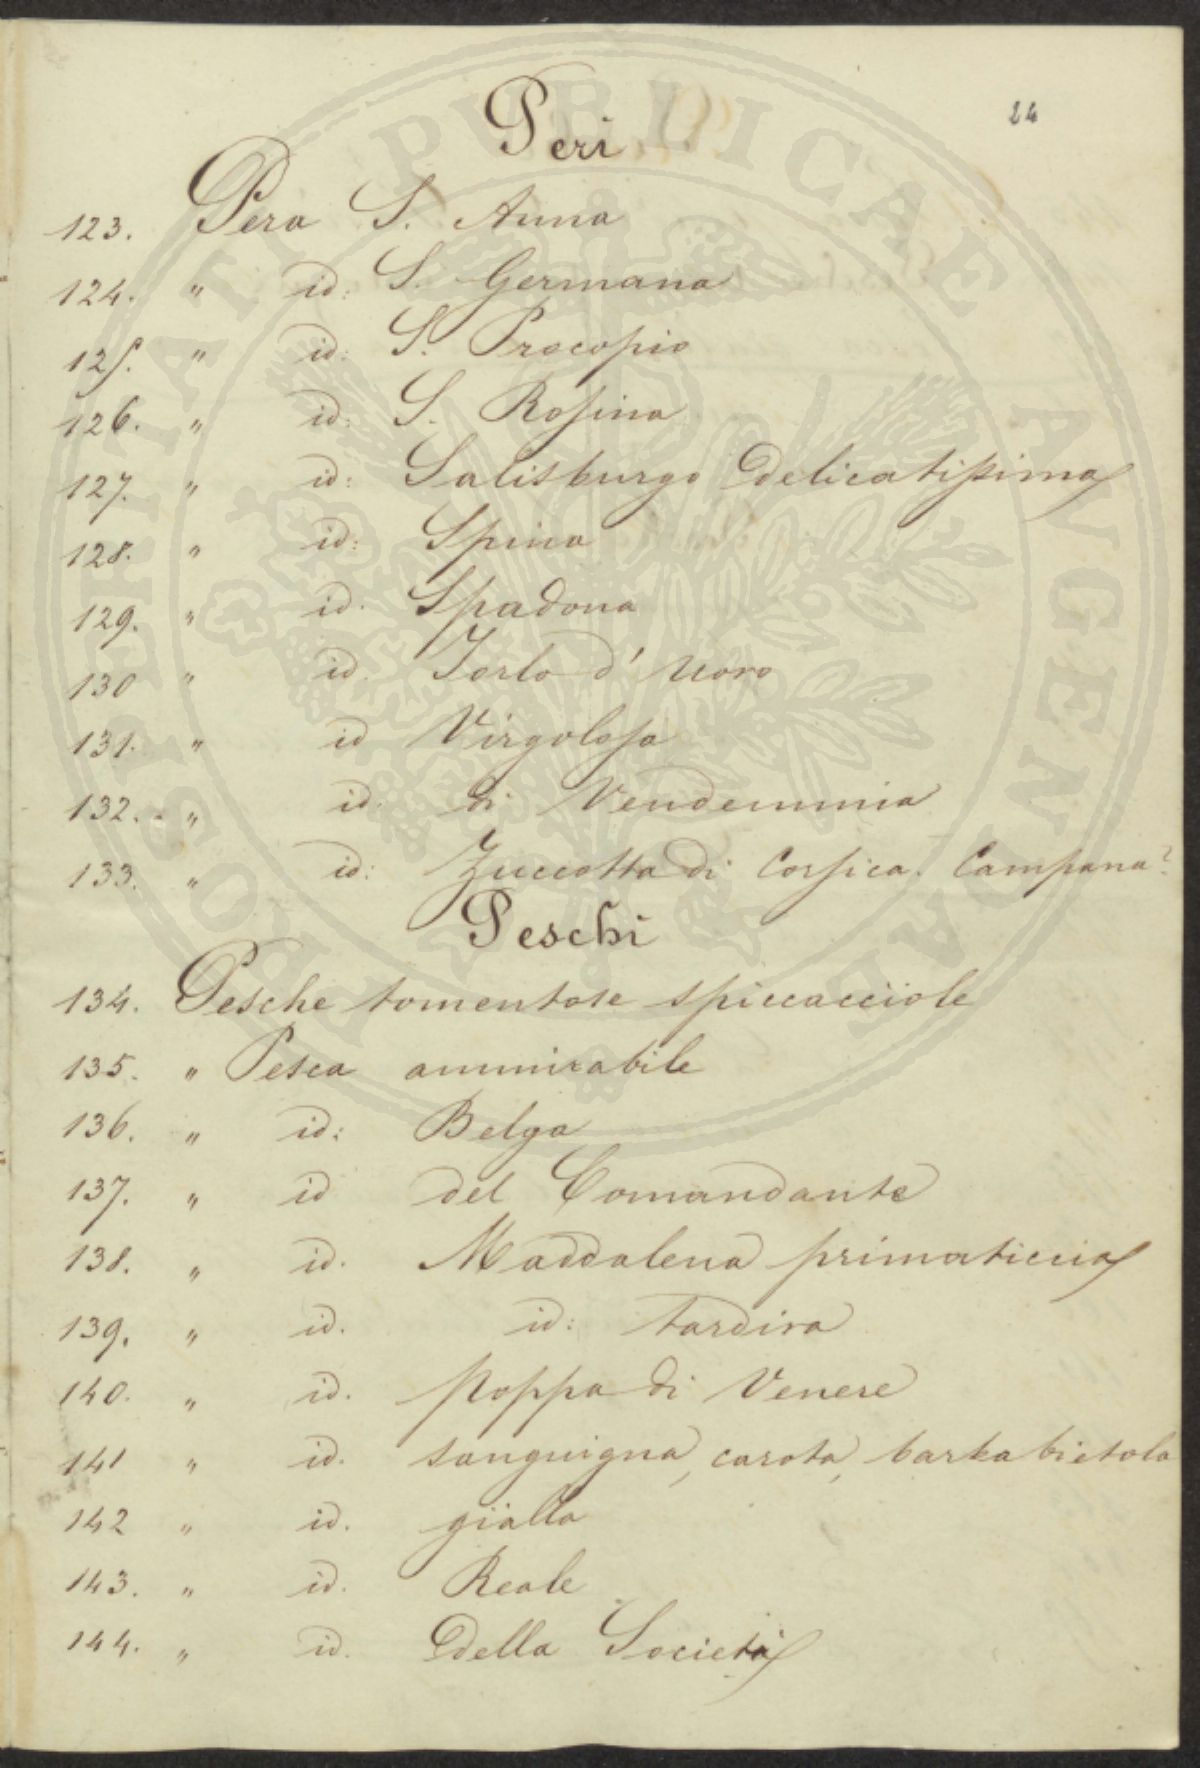 24
Peri
123. Pera S. Anna
124. " id: S. Germana
125. " id: S. Procopio
126. " id: S. Rosina
127. " id: Salisburgo Delicatissima
128. " id: Spina
129. " id. Spadona
130 " id. Torlo d' uovo
131. " id Virgolosa
132. - " id. di Vendemmia
133. " id: Zuccotta di Corsica. Campana?
Peschi
134. Pesche tomentose spiccacciole
135. " Pesca ammirabile
136. " id: Belga
137. " id del Comandante
138. " id. Maddalena primaticcia
139. " id. id: tardiva
140. " id. Poppa di Venere
141 " id. sanguigna, carota, barbabietola
142 " id. gialla
143. " id. Reale
144. " id. Della Società
PROSPERITATI PUBLICAE AUGENDAE